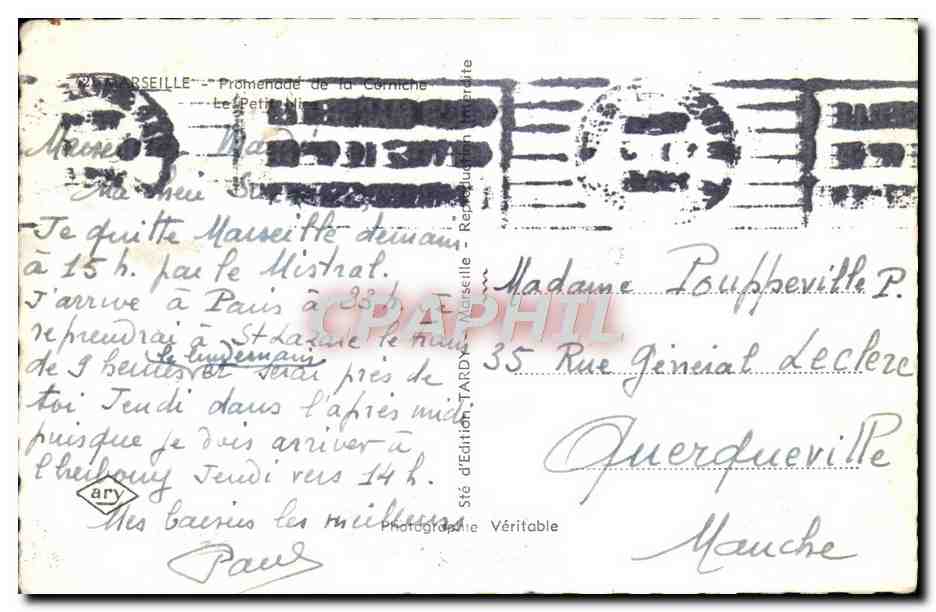 MARSEILLE - Promenade de la Corniche
Le Petit Nice
Mardi
Ma chérie
Je quitte Marseille demain
à 15 h. par le Mistral.
J'arrive à Paris à 23 h. je
reprendrai à St Lazare le train
de 9 heures le lendemain et serai près de
toi Jeudi dans l'après midi
puisque je dois arriver à
Cherbourg Jeudi vers 14 h.
Mes baisers les meilleurs
Paul
ary
Sté d'Edition TARDY - Marseille - Reproduction Interdite
Photographie Véritable
Madame Pouppeville P.
35 Rue Général Leclerc
Querqueville
Manche
CPAPHIL